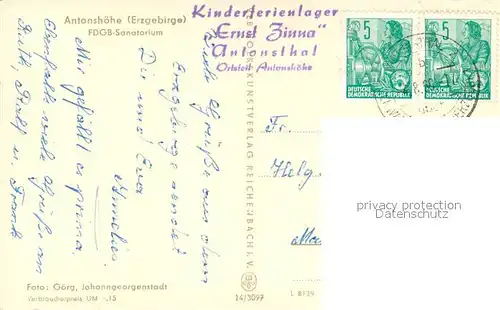 Antonshöhe (Erzgebirge)
FDGB-Sanatorium
Kinderferienlager
„Ernst Zinna"
Antonsthal
Ortsteil Antonshöhe
5
DEUTSCHE
DEMOKRATISCHE REPUBLIK
5
DEUTSCHE
DEMOKRATISCHE REPUBLIK
Viele Grüße aus dem
Erzgebirge sendet
Dir und Eva
Mir gefällt es prima.
Ebenfalls viele Grüße an
Ruth, Ralf u. Frank
BILD U. HEIMAT KUNSTVERLAG REICHENBACH I. V.
Fr.
Helg
privacy protection
Datenschutz
Foto: Görg, Johanngeorgenstadt
Verbraucherpreis, DM -.15
14/3097
L 8/59